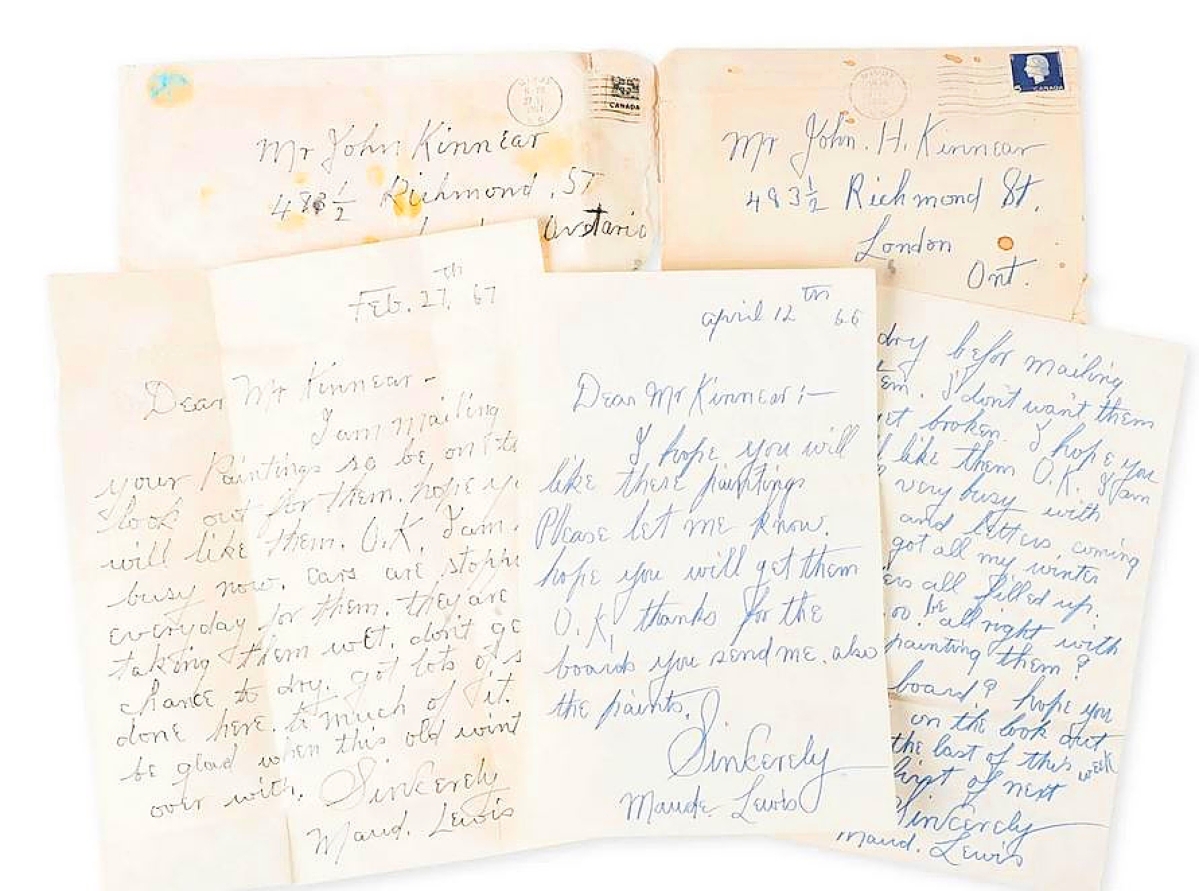 Mr John Kinnear
483½ Richmond. ST
Ontario
CANADA
Mr John. H. Kinnear
493½ Richmond St.
London
Ont.
5 CANADA
Feb. 27th, 67
Dear Mr Kinnear-
I am mailing
your Paintings so be on the
look out for them. hope
will like them. O.K, I am.
busy now. cars are
everyday for them. they are
taking them wet. don't
chance to dry. got lots of
done here. to much of it.
be glad when this old
over with. Sincerely
Maud. Lewis
april 12th 66
Dear Mr Kinnear:-
I hope you will
like these paintings
Please let me know.
hope you will get them
O.K, thanks for the
boards you send me. also
the paints.
Sincerely
Maude Lewis
dry befor mailing
I don't want them
broken. I hope you
like them O.K. I am
very busy with
and letters. coming
got all my winter
all filled up.
be allright with
painting them?
board? hope you
on the look out
the last of this week
first of next
Sincerely
Maud. Lewis